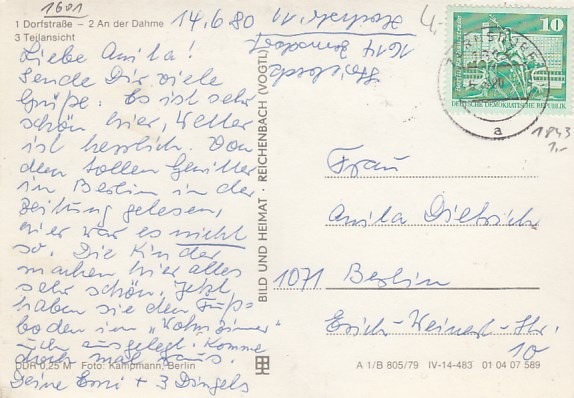 1601
1 Dorfstraße – 2 An der Dahme
3 Teilansicht
14.6.80
Liebe Anita!
Sende Dir viele
Grüße. Es ist sehr
schön hier, Wetter
ist herrlich. Von
dem tollen Gewitter
in Berlin in der
Zeitung gelesen,
hier war es nicht
so. Die Kinder
machen hier alles
sehr schön. Jetzt
haben sie den Fuß-
boden im „Wohnzimmer"
ausgelegt. Komme
doch mal raus.
Deine Erni + 3 Dingels
DDR 0,25 M Foto: Kampmann, Berlin
BILD UND HEIMAT · REICHENBACH (VOGTL)
10
DEUTSCHE DEMOKRATISCHE REPUBLIK
a
1843
1,-
Frau
Anita Dietrich
1071 Berlin
Erich-Weinert-Str.
10
A 1/B 805/79 IV-14-483 01 04 07 589